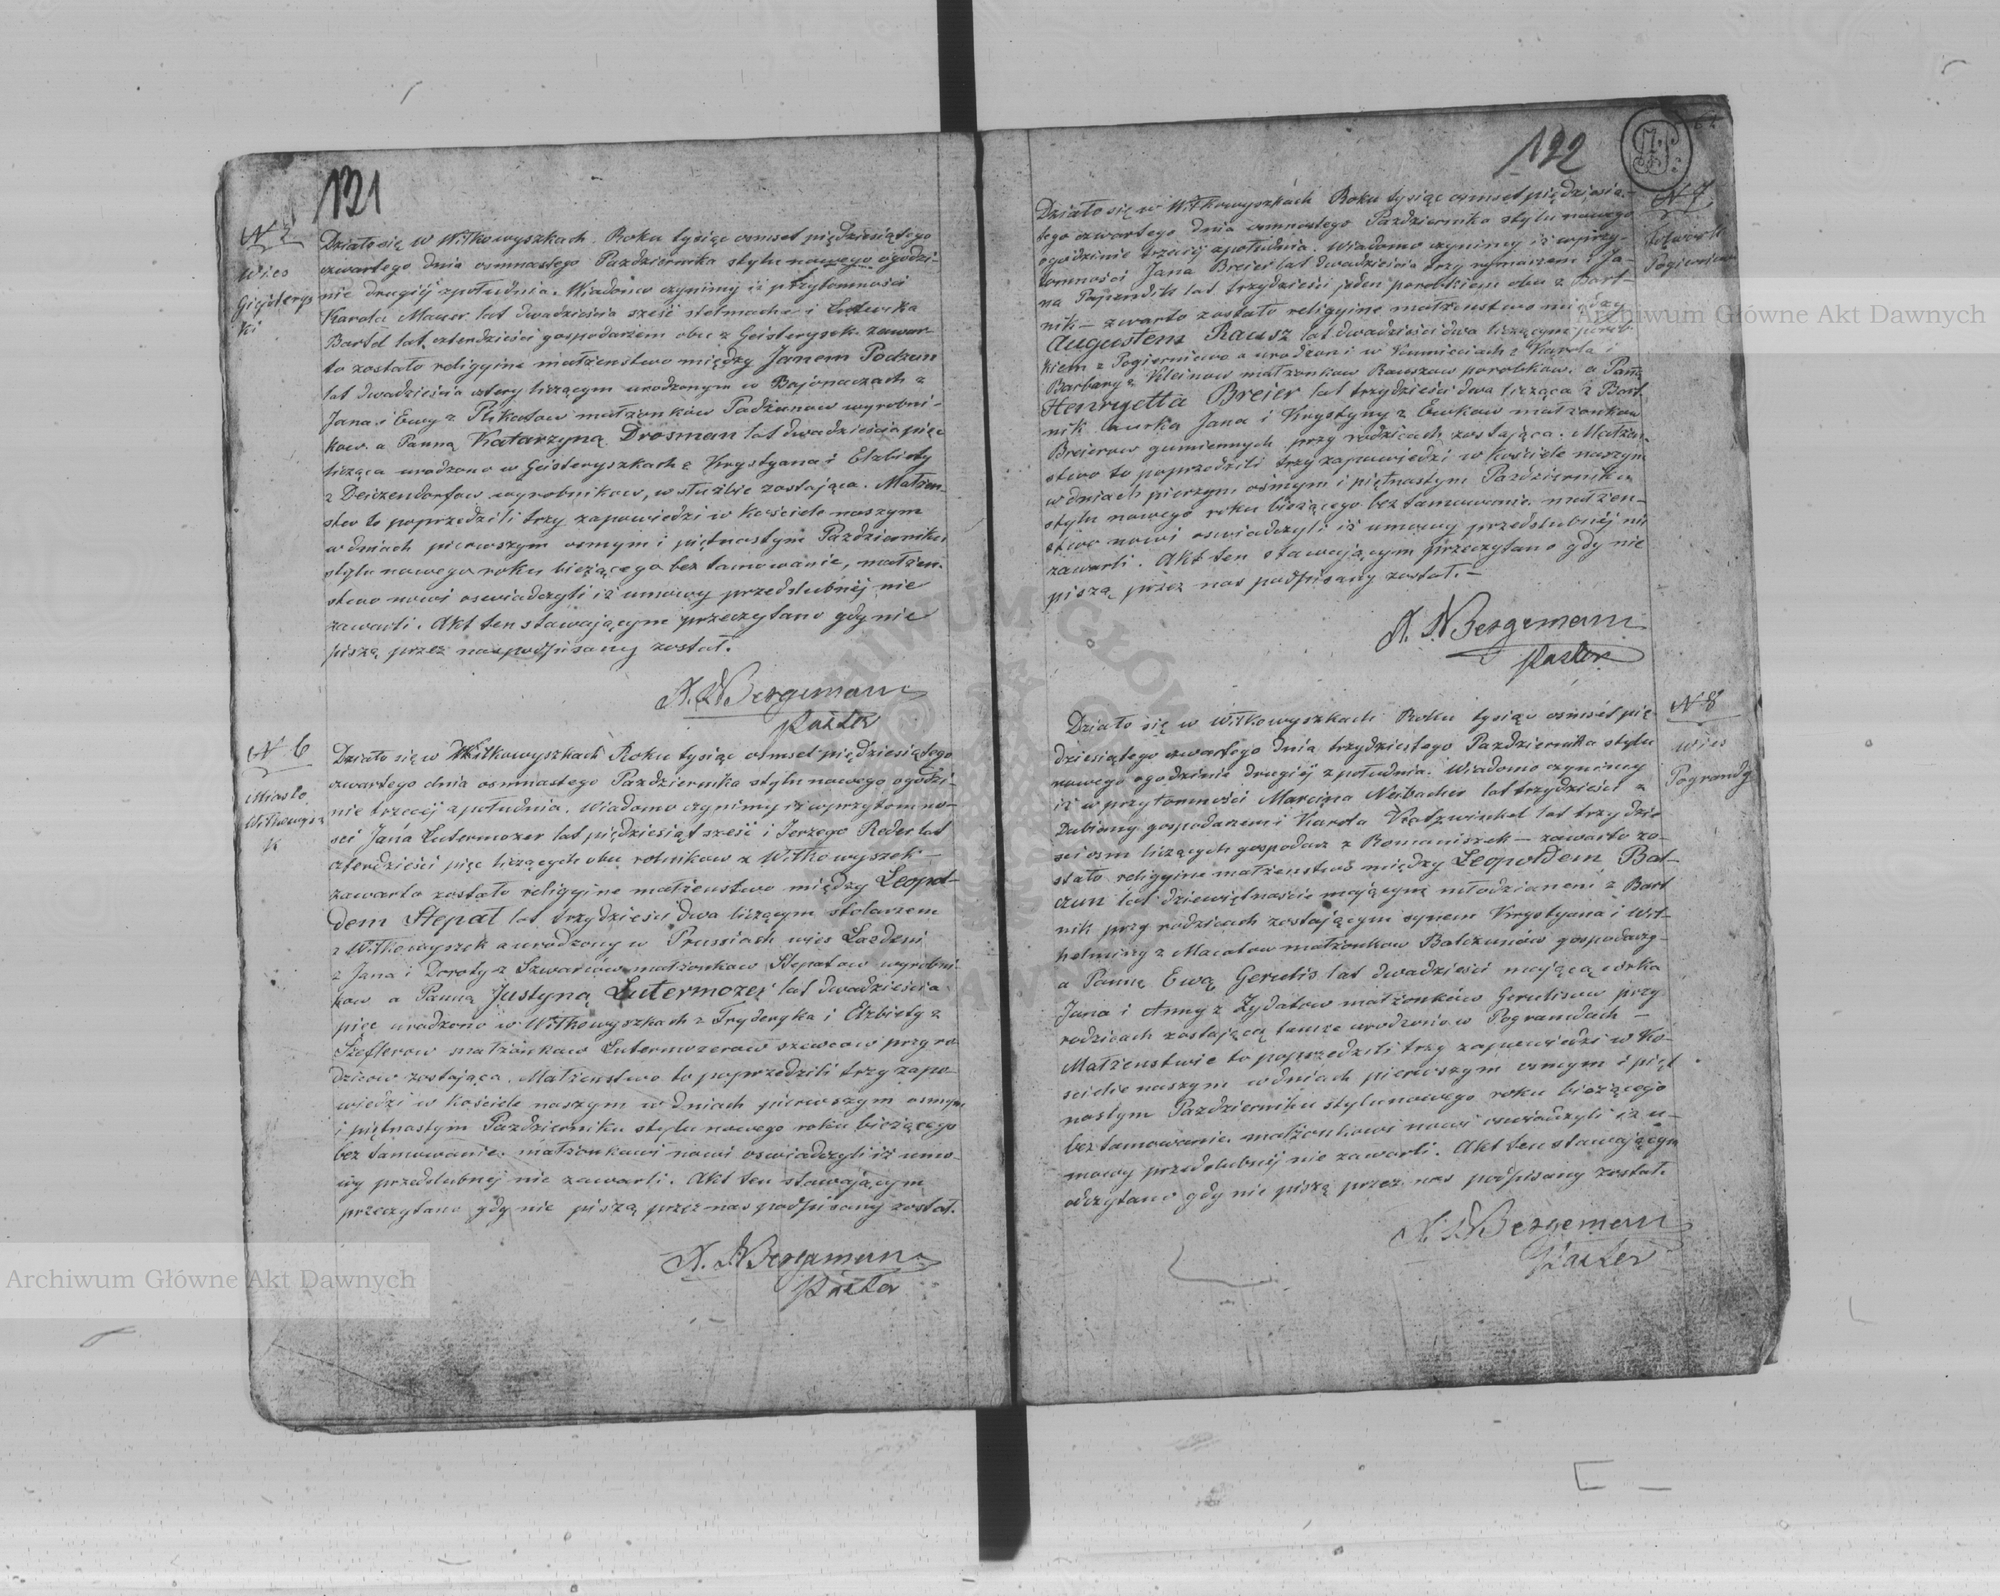 131
Działo się w Wiłkowyszkach Roku tysiąc osmset piędziesiątego
czwartego dnia osmnastego Pazdziernika stylu nowego ogodzi-
nie drugiéj zpołudnia. Wiadomo czynimy iż przytomności
Karola Mauer lat dwadzieścia sześć stelmacha i Ludwika
Bartel lat czterdzieści gospodarzem obu z Geisteryszek zawar
to zostało religyine małżeństwo między Janem Podzun
lat dwadzieścia cztery liczącym urodzonym w Bojonaczach z
Jana i Ewy z małżonków Padzunow wyrobni-
kow a Panną Katarzyną Drosman lat dwadzieścia pięć
licząca urodzona w Geisteryszkach z Krystyana i Elżbiety
z wyrobnikow, w służbie zostająca. Małżen-
stwo to poprzedzili trzy zapowiedzi w Kościele naszym
w dniach pierwszym osmym i piętnastym Pazdziernika
stylu nowego roku bieżącego bez tamowanie, małżen-
stwo nowi oswiadczyli iż umowy przedslubnéj nie
zawarli. Akt ten stawającym przeczytano gdy nie
piszą przez nas podpisany został.
Bergemann
Pastor
N 6
Miasto
Wiłkowysz
k
Działo się w Wiłkowyszkach Roku tysiąc osmset piędziesiątego
czwartego dnia osmnastego Pazdziernika stylu nowego ogodzi-
nie trzeciéj zpołudnia. Wiadomo czynimy iż wprzytomno-
sci Jana Lutermozer lat piędziesiąt sześć i Jerzego Reder lat
czterdzieści pięć liczących obu rolnikow z Wiłkowyszek -
zawarto zostało religyine małżeństwo między Leopol-
dem Stepat lat trzydzieści dwa liczącym stolarzem
z Wiłkowyszek a urodzony w Prussiach wies
z Jana i Doroty z Szwarców małżonkow Stepatow wyrobni-
kow a Panną Justyną Lutermozer lat dwadzieścia
pięć urodzono w Wiłkowyszkach z Fryderyka i Elżbiety z
Szeflerow małżonkow Lutermozerow szewcow przy ro-
dzicow zostająca. Małżenstwo to poprzedzili trzy zapo-
wiedzi w kościele naszym w dniach pierwszym osmym
i piętnastym Pazdziernika stylu nowego roku bieżącego
bez tamowanie. małżonkowi nowi oswiadczyli iż umo-
wy przedslubnéj nie zawarli. Akt ten stawającym
przeczytano gdy nie piszą przez nas podpisany został.
Bergemann
Pastor
122
N 7
Działo się w Wiłkowyszkach Roku tysiąc osmset piędziesią-
tego czwartego dnia osmnastego Pazdziernika stylu nowego
ogodzinie trzeciéj zpołudnia. Wiadomo czynimy iż wprzy-
tomności Jana Breier lat dwadzieścia trzy i Ja-
na lat trzydzieści jeden parobkiem obu z Bart-
nik - zwarto zostało religyine małżenstwo między
Augustem Rausz lat dwadzieścia dwa liczącym parob-
kiem z Pogierniewo a urodzoni w z Karola i
Barbary z Kleinow małżonkow Rauszow parobkow. a Panną
Henryetta Breier lat trzydzieści dwa licząca z Bart-
nik curka Jana i Krystyny z małżonkow
Breierow gumiennych przy rodzicach zostająca. Małżen-
stwo to poprzedzili trzy zapowiedzi w kościele naszym
w dniach pierszym osmym i piętnastym Pazdziernika
stylu nowego roku bieżącego bez tamowania małżen-
stwo nowi oswiadczyli iż umowy przedslubnéj nie
zawarli. Akt ten stawającym przeczytano gdy nie
piszą przez nas podpisany został. -
Bergemann
Pastor
N 8
wies
Pograndy
Działo się w Wiłkowyszkach Roku tysiąc osmset pię-
dziesiątego czwartego dnia trzydziestego Pazdziernika stylu
nowego ogodzinie drugiéj zpołudnia. Wiadomo czynimy
iż w przytomności Marcina Neibacher lat trzydzieści z
gospodarzem i Karola Katzwinkel lat trzydzie
sci osm liczących gospodarz z Romaniszek - zawarto zo-
stało religyine małżenstwo między Leopoldem Bal-
czun lat dziewiętnaście mającym młodzianem z Bart
nik przy rodzicach zostającym synem Krystyana i Wil-
helminy z małżonkow Balczunów gospodarzy-
a Panną Ewą Gerulis lat dwadzieści mającą córka
Jana i Anny z małżonków Gerulisow przy
rodzicach zostającą tamże urodzono w Pograndach -
Małżenstwie to poprzedzili trzy zapowiedzi w Ko-
sciele naszym w dniach pierwszym osmym i pięt
nastym Pazdzierniku stylu nowego roku bieżącego
bez tamowanie. małżonkowi nowi oswiadczyli iż u-
mowy przedslubnéj nie zawarli. Akt ten stawającym
odczytano gdy nie piszą przez nas podpisany został.
Bergemann
Pastor
Archiwum Główne Akt Dawnych
Archiwum Główne Akt Dawnych